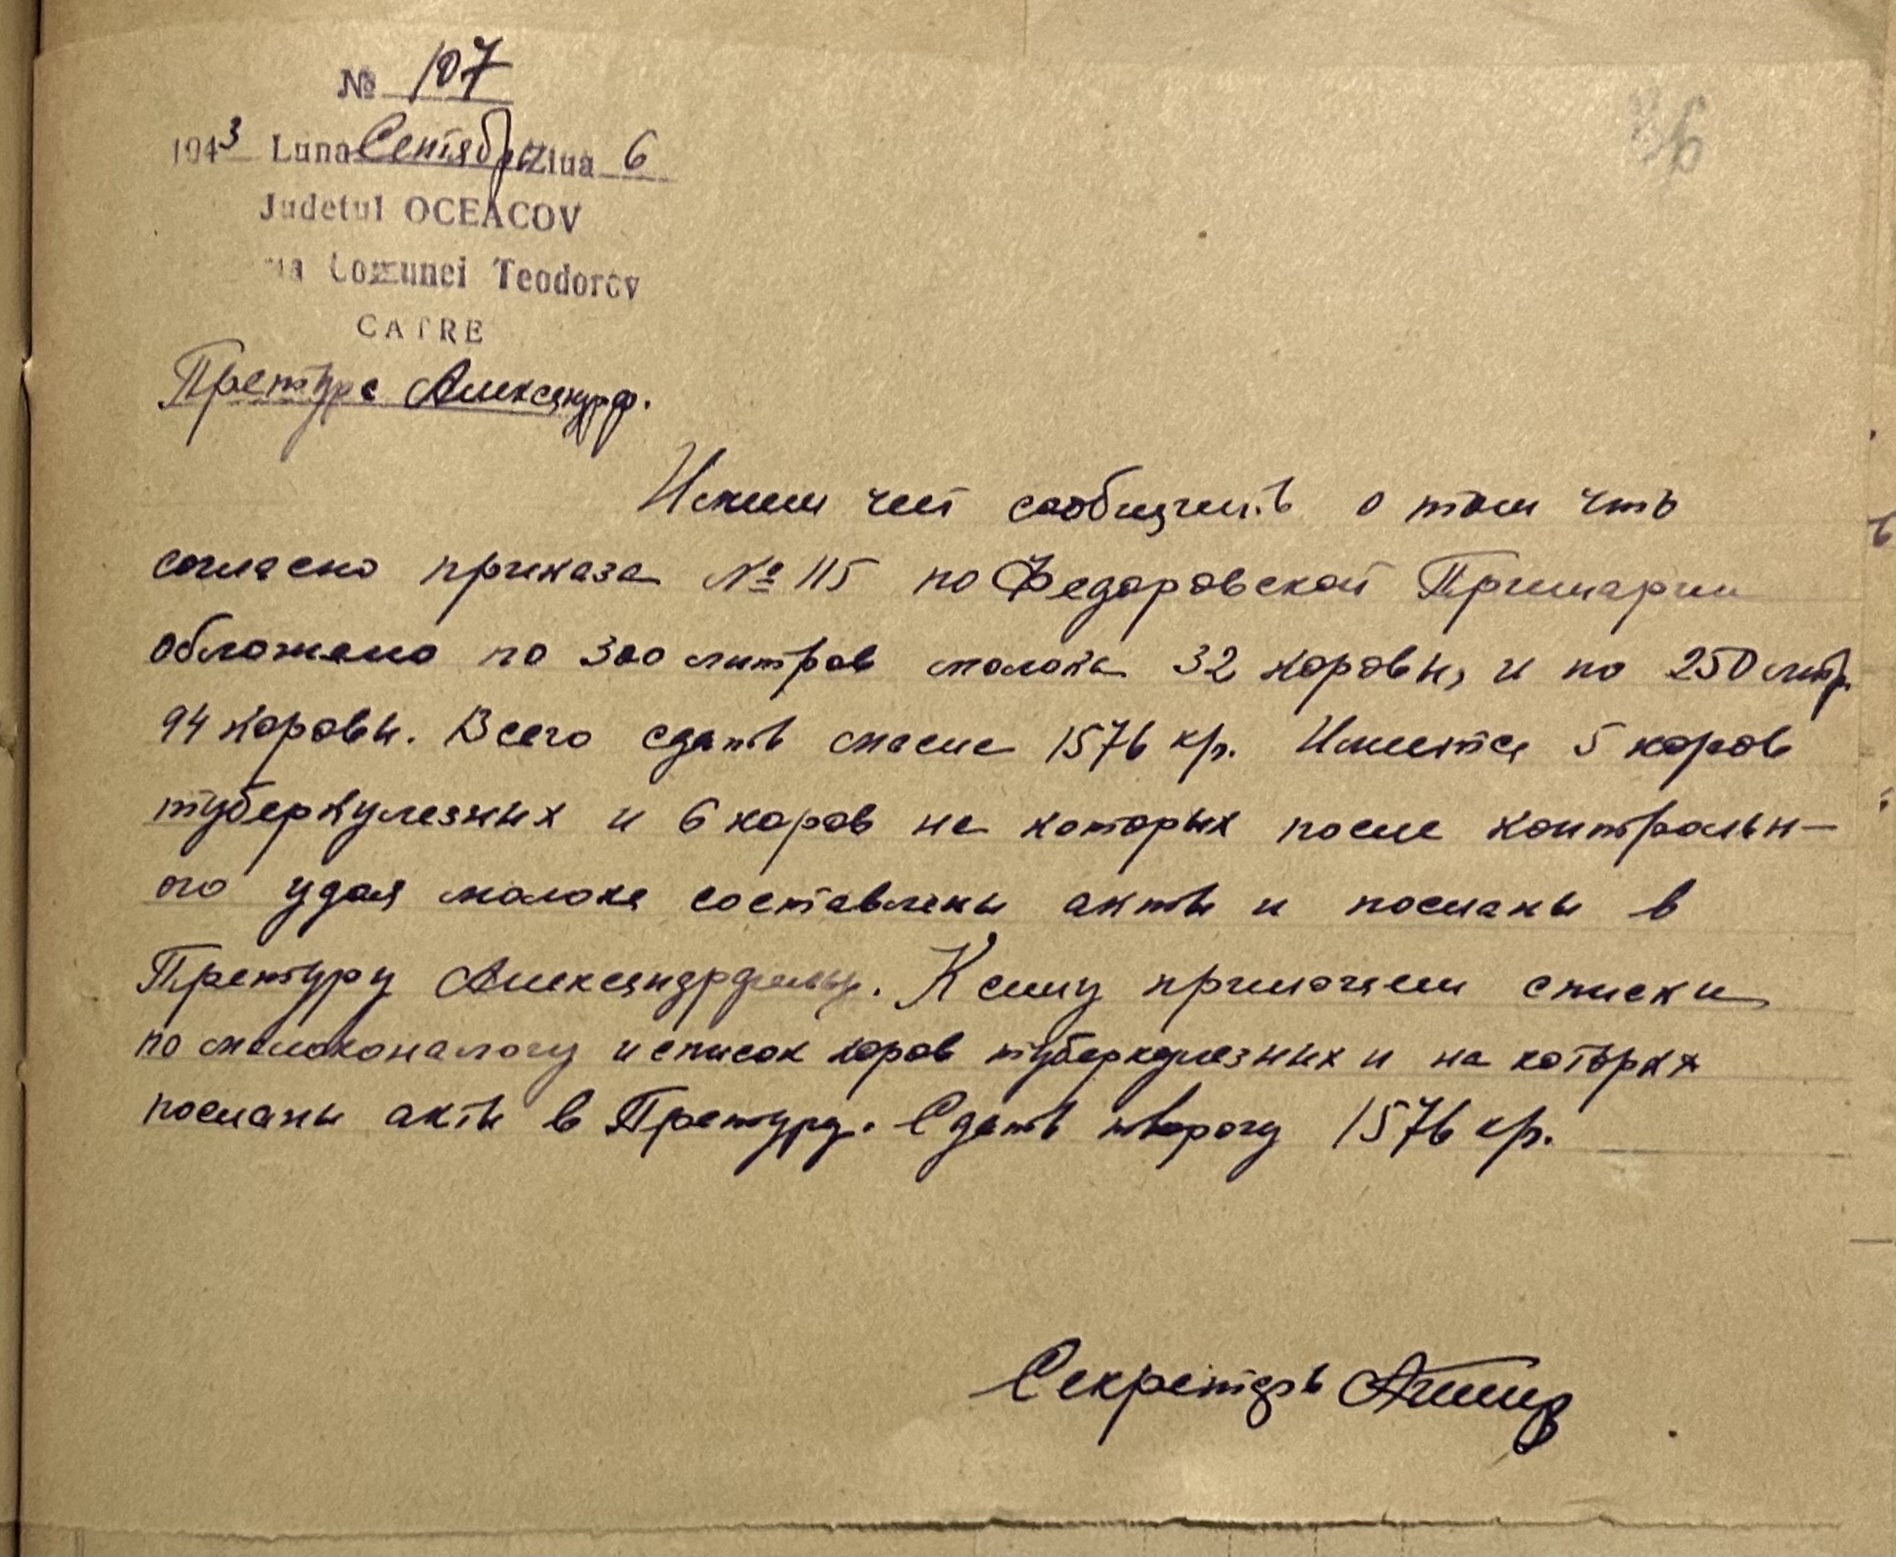 № 107
1943 Luna Сентябрь Ziua 6
Judetul OCEACOV
ria Comunei Teodorov
CATRE
Претуре Александрф.
Имеем чест сообщить о том что
согласно приказа № 115 по Федоровской Примарии
обложено по 300 литров молока 32 коровы, и по 250 литр.
94 коровы. Всего сдать масла 1576 кр. Имеется 5 коров
туберкулезных и 6 коров на которых после контрольн-
ого удоя молока составлены акты и посланы в
Претуру Александрфельд. К сему прилогаем списки
по молоконалогу и список коров туберкулезных и на которых
посланы акты в Претуру. Сдать творогу 1576 кр.
Секретарь